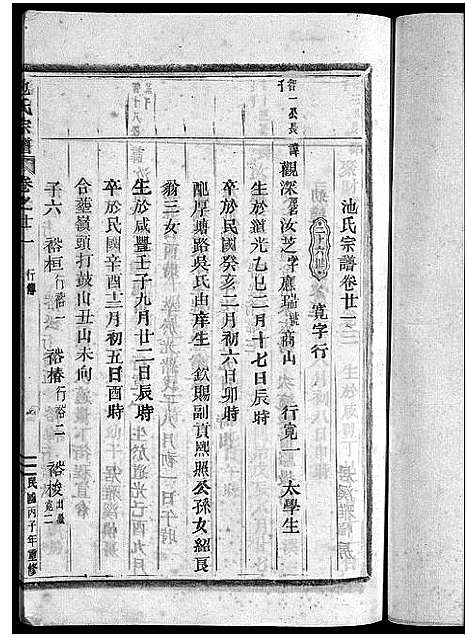 池氏宗譜卷廿一
二十六世 寬字行
行一丞長子
諱觀深 名汝芝 字應瑞 號商山 行寬一 太學生
生於道光乙巳二月十七日辰時
卒於民國癸亥二月初六日卯時
配厚塘路吳氏由庠生 欽賜副貢熙照公孫女紹良
翁三女
生於咸豐壬子九月廿二日辰時
卒於民國辛酉十二月初五日酉時
合塟嶺頭打鼓山丑山未向
子六 裕桓 行裕一 裕椿 行裕二 裕梭 出繼寬二
池氏宗譜 卷之廿一 行傳
民國丙子年重修